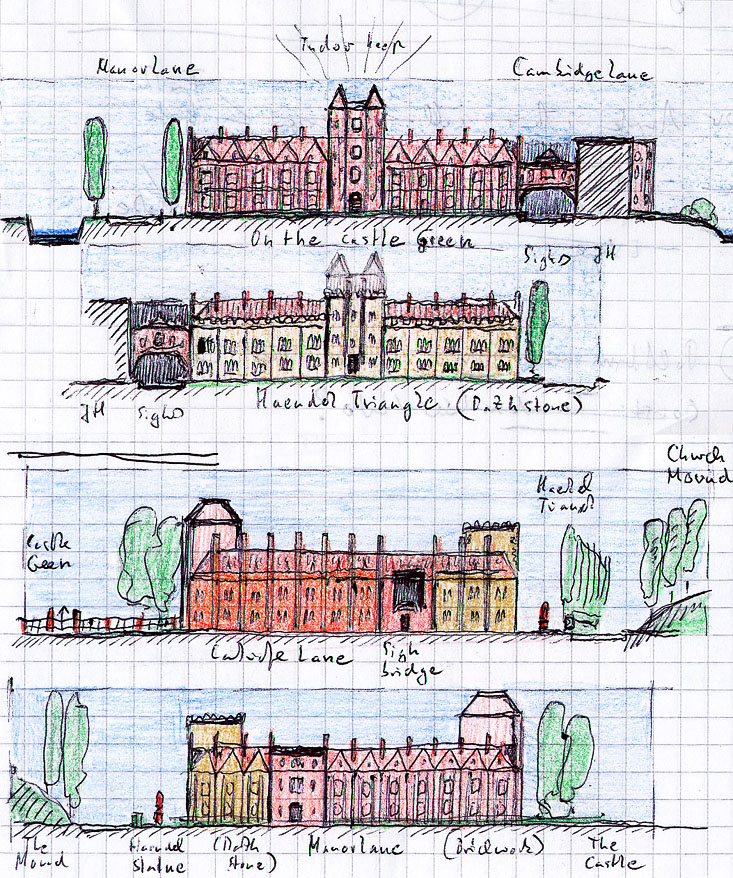 Tudor Keep
Manor Lane
Cambridge Lane
On the Castle Green
Sighb JH
JH Sighb
Haendel Triangle (Bathstone)
Church
Mound
Haendel
Triangl
Castle
Green
Lane
Sigh
bridge
The
Mound
Haendel
Statue
(Bath
Stone)
Manorlane
(Brickwork)
The
Castle